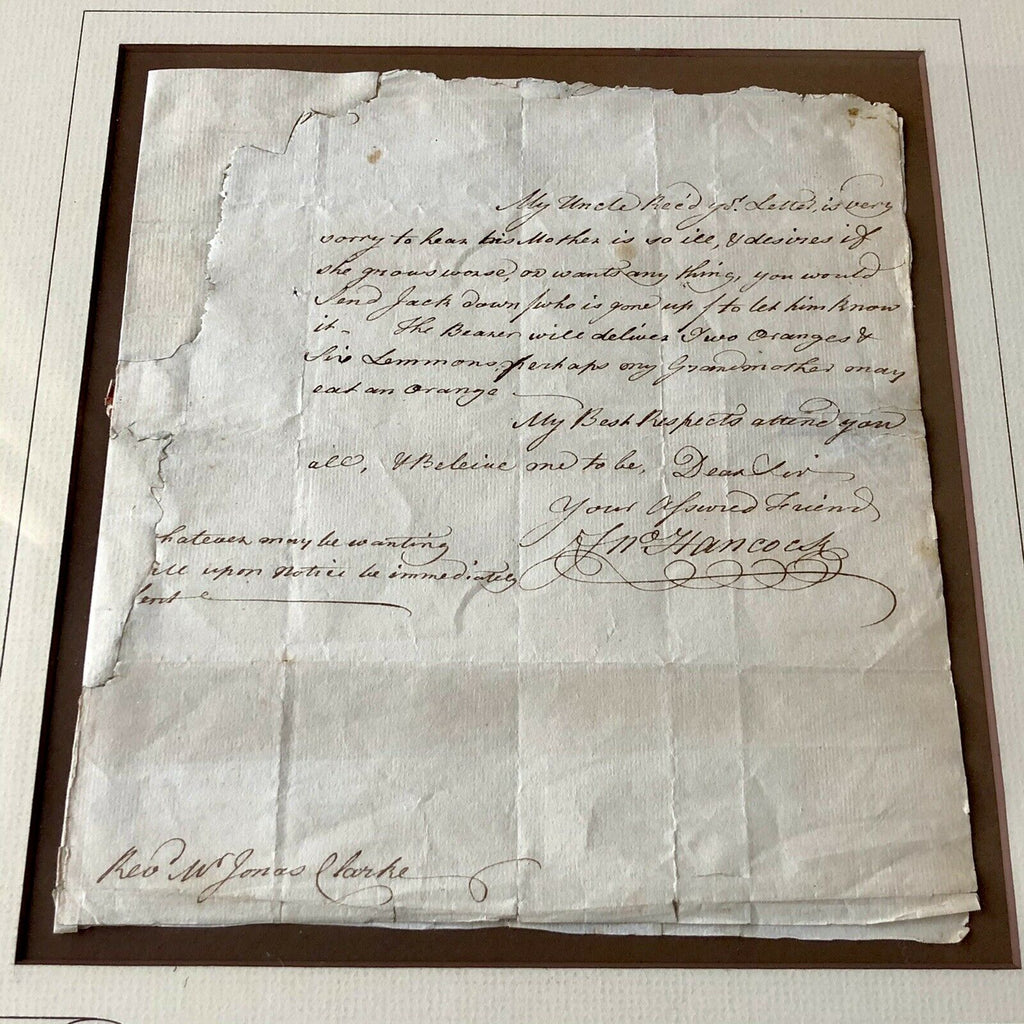 My Uncle Rec'd yr. Letter, is very
sorry to hear his Mother is so ill, & desires if
she grows worse, or wants any thing, you would
Send Jack down (who is gone up) to let him know
it - The Bearer will deliver Two Oranges &
Six Lemmons, perhaps my Grandmother may
eat an Orange
My Best Respects attend you
all, & Beleive me to be, Dear Sir
Your Assured Friend
Jno Hancock
hatever may be wanting
ill upon Notice be immediately
sent
Revd. Mr Jonas Clarke